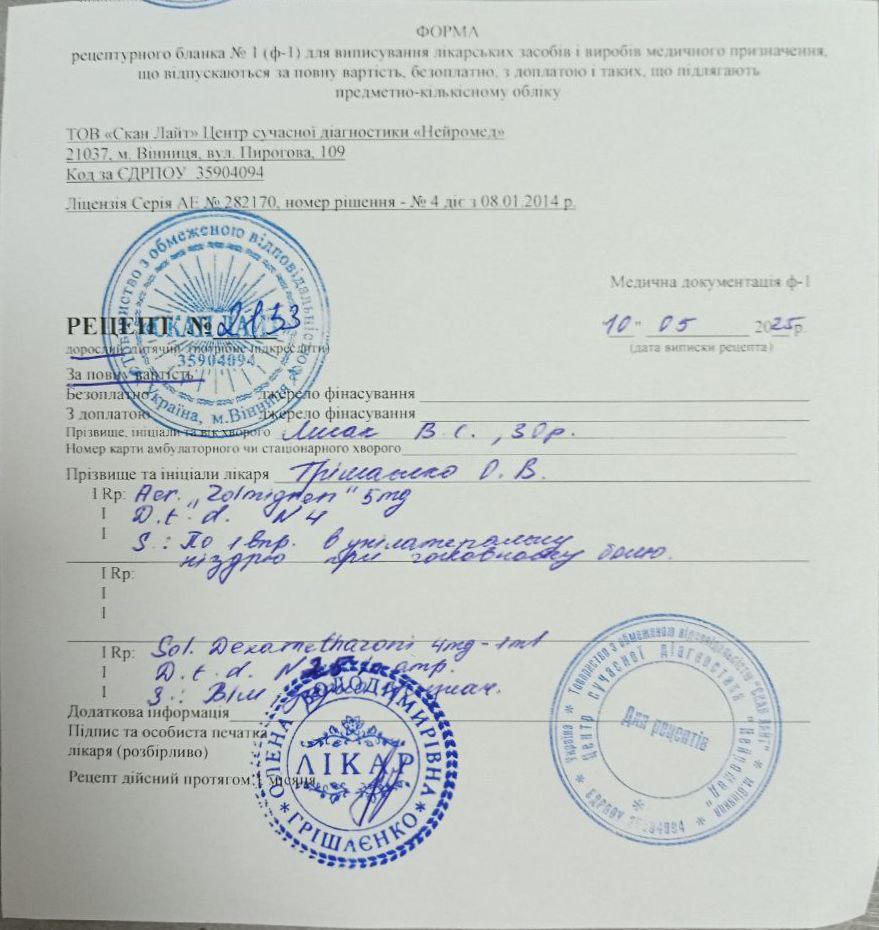 ФОРМА
рецептурного бланка № 1 (ф-1) для виписування лікарських засобів і виробів медичного призначення,
що відпускаються за повну вартість, безоплатно, з доплатою і таких, що підлягають
предметно-кількісному обліку
ТОВ «Скан Лайт» Центр сучасної діагностики «Нейромед»
21037, м. Вінниця, вул. Пирогова, 109
Код за ЄДРПОУ 35904094
Ліцензія Серія АЕ № 282170, номер рішення - № 4 діє з 08.01.2014 р.
Товариство з обмеженою відповідальністю
"СКАН ЛАЙТ"
35904094
Україна, м.Вінниця
Медична документація ф-1
РЕЦЕПТ №
10 - 05 2025р.
дорослий, дитячий (потрібне підкреслити)
(дата виписки рецепта)
За повну вартість
Безоплатно джерело фінасування
З доплатою джерело фінасування
Прізвище, ініціали та вік хворого Лисак В.С., 30р.
Номер карти амбулаторного чи стаціонарного хворого
Прізвище та ініціали лікаря Грішаєнко О.В.
I Rp: Aer. "Zolmigren" 5mg
I D.t.d. N4
I S.: По 1 впр. в унілатеральну
ніздрю при головному болю.
I Rp:
I
I
I Rp: Sol. Dexamethazoni 4mg-1ml
I D.t.d. N amp.
I S.: В/м
Додаткова інформація
Підпис та особиста печатка
лікаря (розбірливо)
Рецепт дійсний протягом 1 місяця
ОЛЕНА ВОЛОДИМИРІВНА
ЛІКАР
ГРІШАЄНКО
Україна * Товариство з обмеженою відповідальністю "СКАН ЛАЙТ" * м.Вінниця
Центр сучасної діагностики "Нейромед"
Для рецептів
ЄДРПОУ 35904094